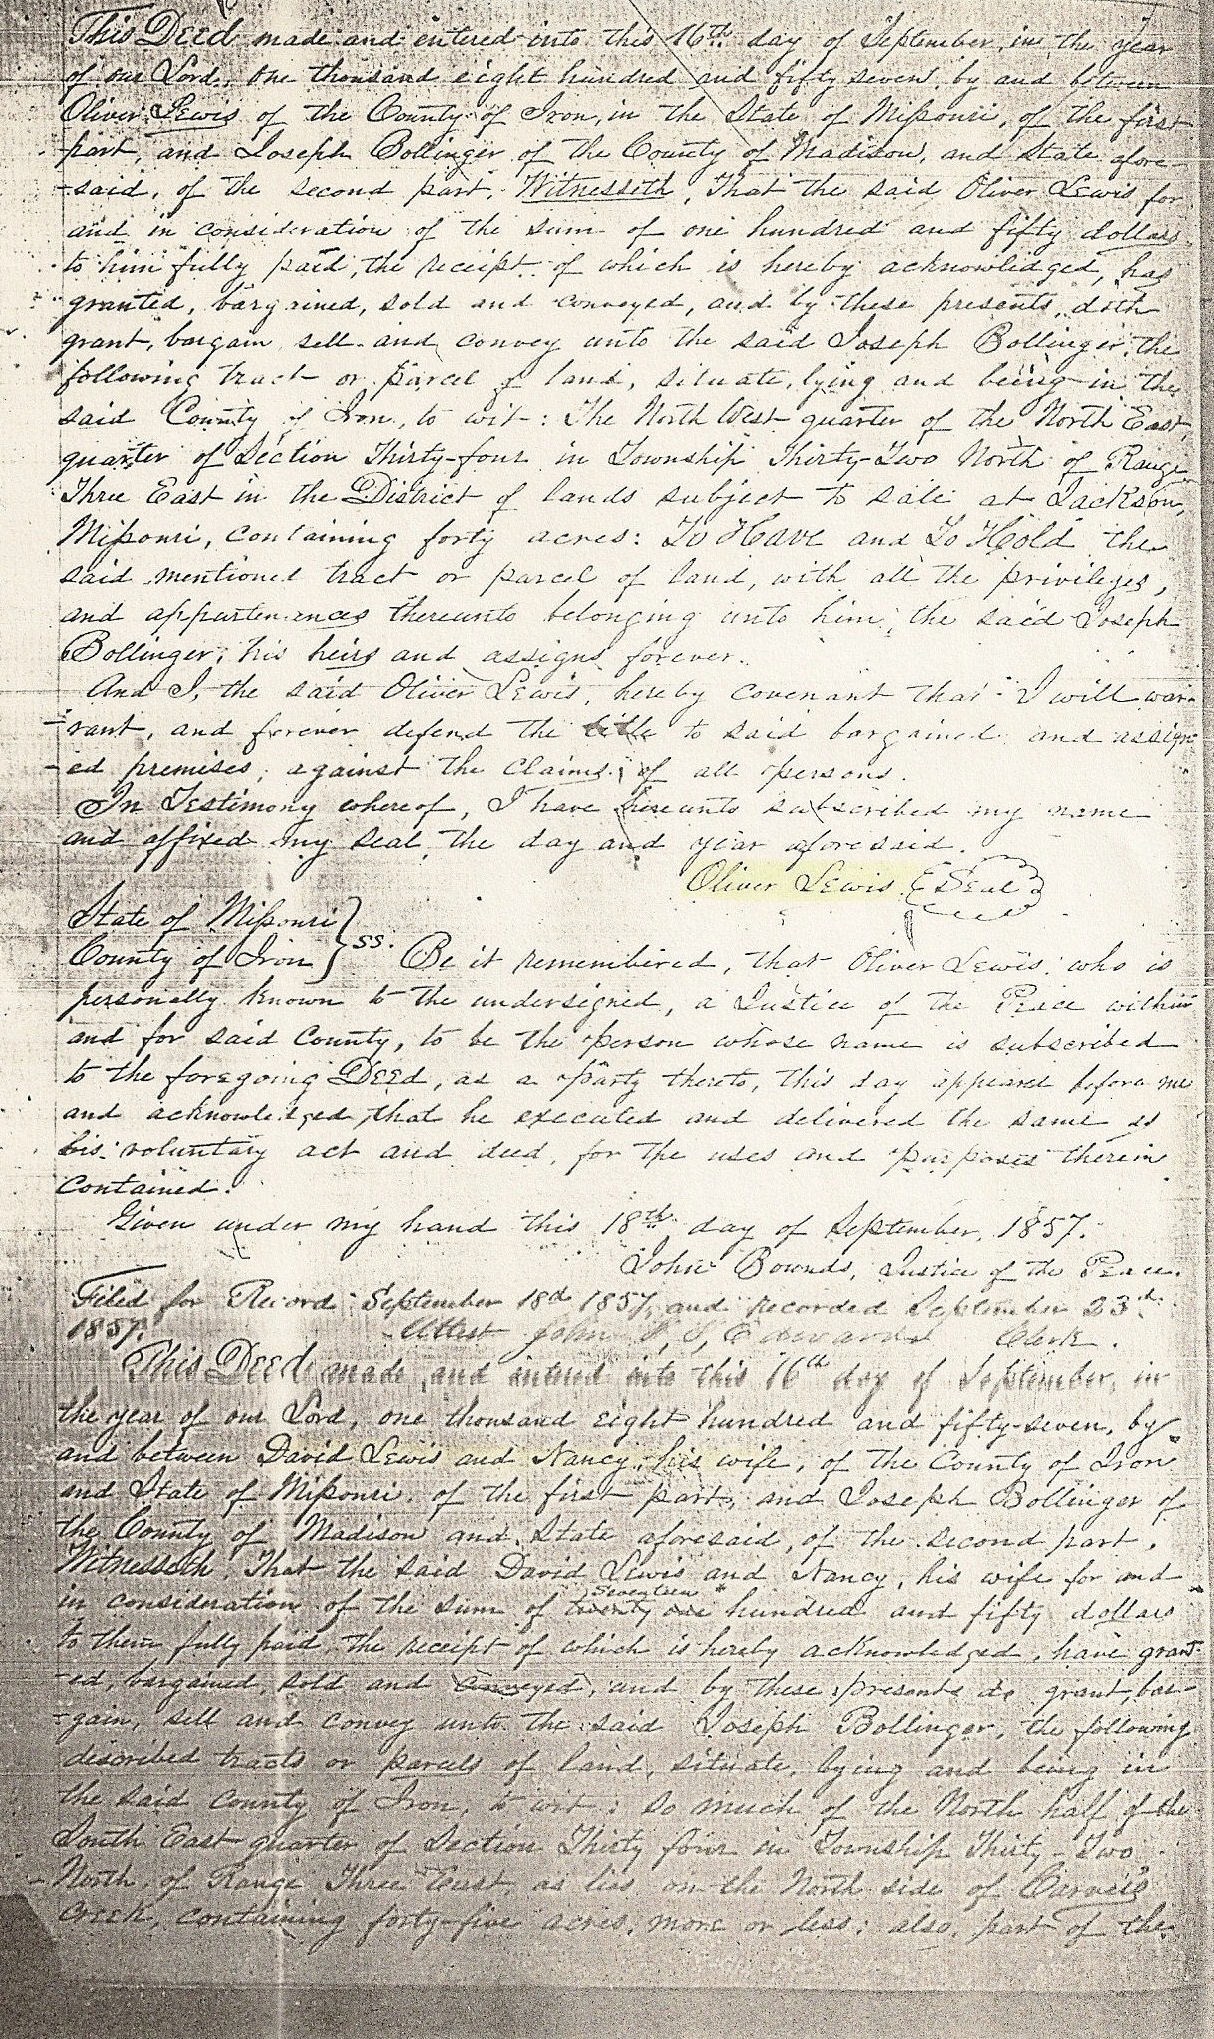 This Deed made and entered into this 16th day of September, in the year
of our Lord, one thousand eight hundred and fifty seven, by and between
Oliver Lewis of the County of Iron, in the State of Missouri, of the first
part, and Joseph Bollinger of the County of Madison, and State afore-
-said, of the second part, Witnesseth, That the said Oliver Lewis for
and in consideration of the sum of one hundred and fifty dollars
to him fully paid, the receipt of which is hereby acknowledged, has
granted, bargained, sold and conveyed, and by these presents, doth
grant, bargain sell and convey unto the said Joseph Bollinger, the
following tract or parcel of land, situate, lying and being in the
said County of Iron, to wit: The North West quarter of the North East
quarter of Section Thirty-four in Township Thirty-Two North of Range
Three East in the District of lands subject to sale at Jackson,
Missouri, containing forty acres: To Have and To Hold the
said mentioned tract or parcel of land, with all the privileges,
and appurtenences thereunto belonging unto him, the said Joseph
Bollinger, his heirs and assigns forever.
And I, the said Oliver Lewis, hereby covenant that I will war-
-rant, and forever defend the title to said bargained and assign-
-ed premises, against the claims of all persons.
In Testimony whereof, I have hereunto subscribed my name
and affixed my seal, the day and year aforesaid.
Oliver Lewis (Seal)
State of Missouri
County of Iron } ss. Be it remembered, that Oliver Lewis, who is
personally known to the undersigned, a Justice of the Peace within
and for said County, to be the person whose name is subscribed
to the foregoing Deed, as a party thereto, this day appeared before me
and acknowledged that he executed and delivered the same as
his voluntary act and deed, for the uses and purposes therein
contained.
Given under my hand this 18th day of September, 1857.
John Bownds, Justice of the Peace.
Filed for Record September 18d 1857, and recorded September 23d
1857. Attest John Edwards Clerk.
This Deed made and entered into this 16th day of September, in
the year of our Lord, one thousand eight hundred and fifty-seven, by
and between David Lewis and Nancy, his wife, of the County of Iron
and State of Missouri, of the first part, and Joseph Bollinger of
the County of Madison and State aforesaid, of the second part,
Witnesseth, That the said David Lewis and Nancy, his wife for and
Seventeen
in consideration of the sum of twenty one hundred and fifty dollars
to them fully paid, the receipt of which is hereby acknowledged, have grant-
-ed, bargained, sold and conveyed, and by these presents do grant, bar-
-gain, sell and convey unto the said Joseph Bollinger, the following
described tracts or parcels of land, situate, lying and being in
the said County of Iron, to wit: So much of the North half of the
South East quarter of Section Thirty four in Township Thirty-Two
North of Range Three East, as lies on the North side of
Creek, containing forty-five acres, more or less; also, part of the